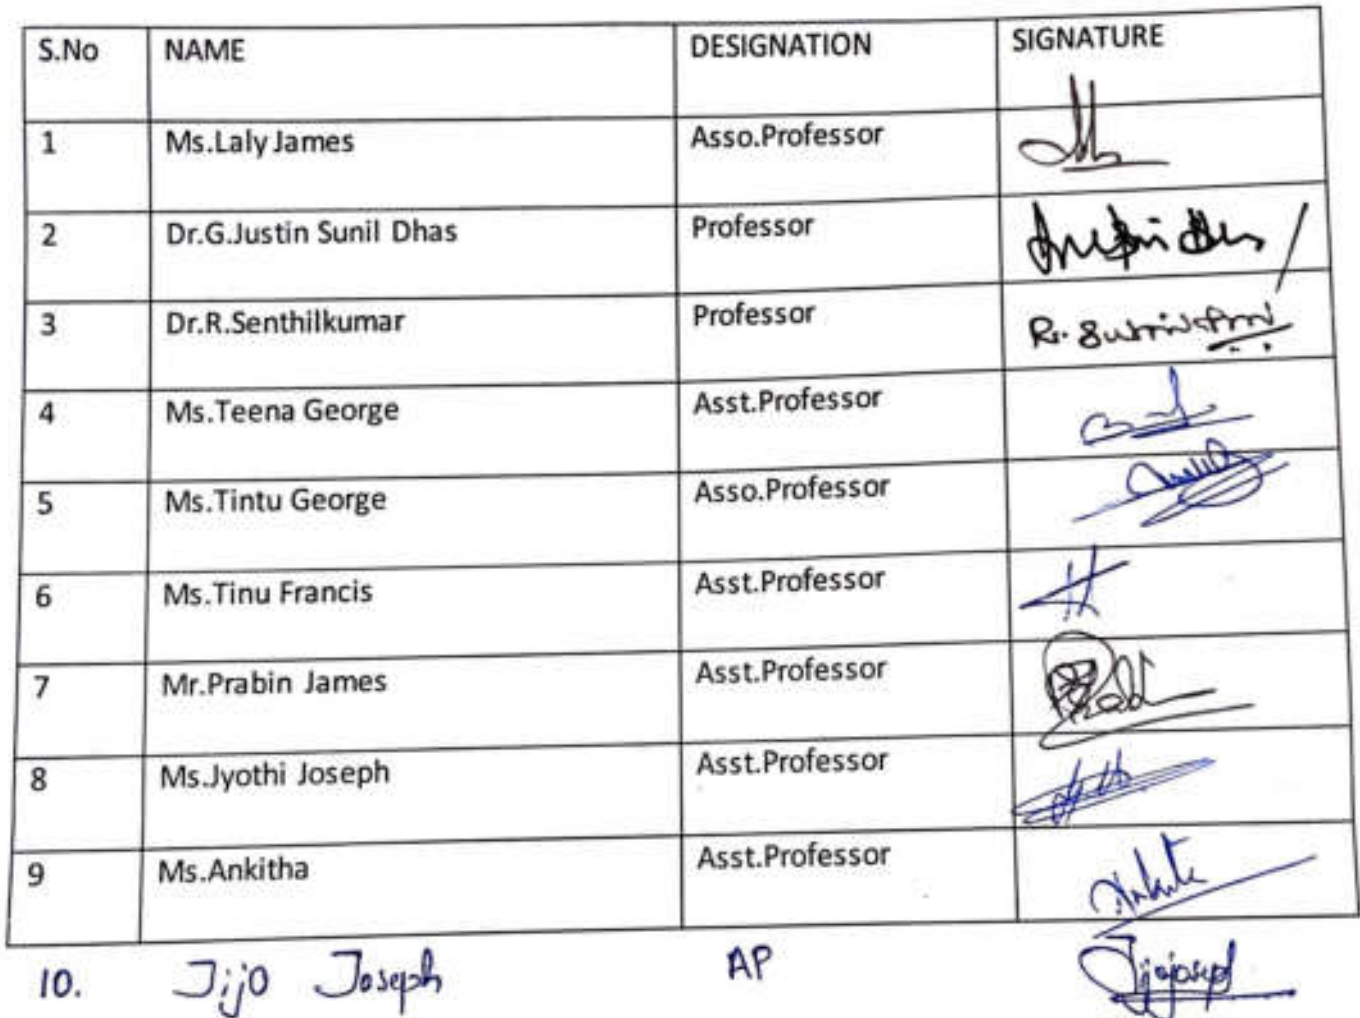 S.No NAME DESIGNATION SIGNATURE
1 Ms.Laly James Asso.Professor
2 Dr.G.Justin Sunil Dhas Professor
3 Dr.R.Senthilkumar Professor R.
4 Ms.Teena George Asst.Professor
5 Ms.Tintu George Asso.Professor
6 Ms.Tinu Francis Asst.Professor
7 Mr.Prabin James Asst.Professor
8 Ms.Jyothi Joseph Asst.Professor
9 Ms.Ankitha Asst.Professor
10. Jijo Joseph AP Jijojoseph